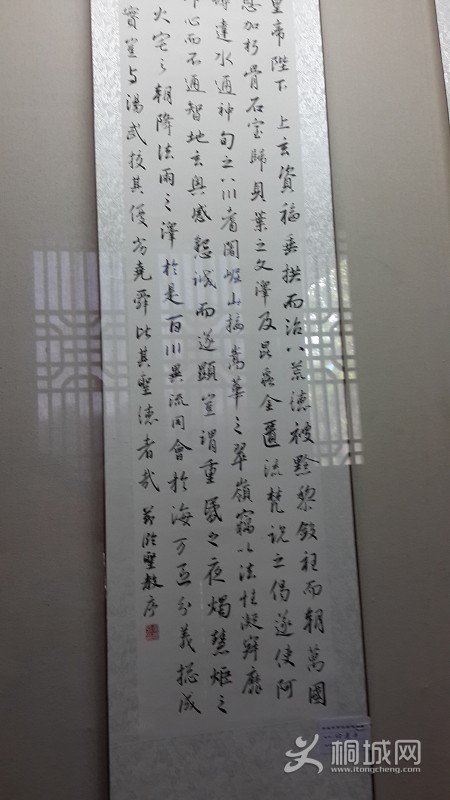 皇帝陛下 上玄資福垂拱而治八荒德被黔黎斂衽而朝萬國
恩加朽骨石室歸貝葉之文澤及昆蟲金匱流梵說之偈遂使阿
耨達水通神甸之八川耆闍崛山接嵩華之翠嶺竊以法性凝寂靡
歸心而不通智地玄奧感懇誠而遂顯豈謂重昏之夜燭慧炬之
火宅之朝降法雨之澤於是百川異流同會於海万區分義總成
實豈与湯武挍其優劣堯舜比其聖德者哉 臨聖教序
桐城网
www.itongcheng.com